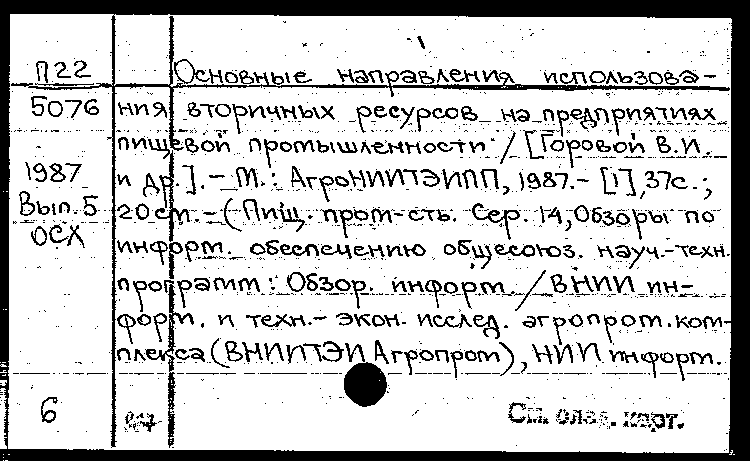 П22 Основные направления использова-
5076 ния вторичных ресурсов на предприятиях
пищевой промышленности / [Горовой В.И.
1987 и др.]. – М.: АгроНИИТЭИПП, 1987.- [1], 37с.;
Вып. 5 20см. – (Пищ. пром-сть. Сер. 14, Обзоры по
ОСХ информ. обеспечению общесоюз. науч.-техн.
программ: Обзор. информ. / ВНИИ ин-
форм. и техн.- экон. исслед. агропром. ком-
плекса (ВНИИТЭИ Агропром), НИИ информ.
6 См. след. карт.